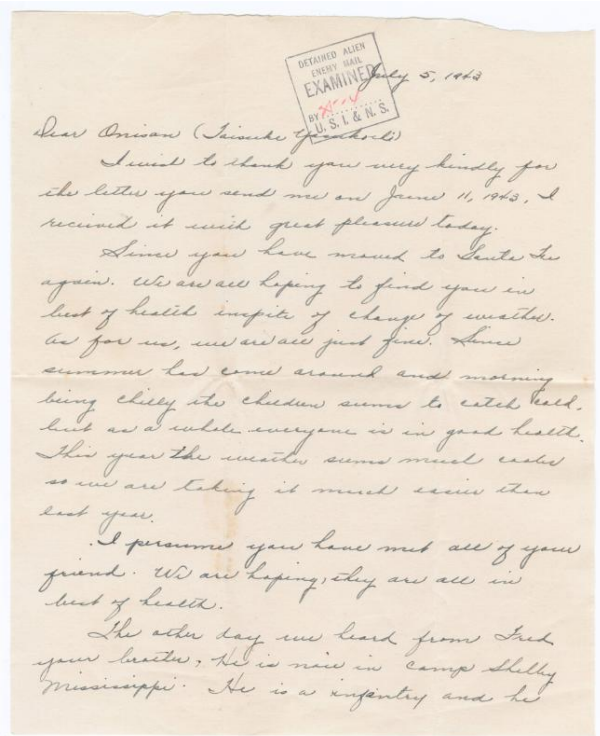 DETAINED ALIEN
ENEMY MAIL
EXAMINED
BY
U. S. I. & N. S.
July 5, 1943
Dear Onisan (Taisuke
I wist to thank you very kindly for
the letter you send me on June 11, 1943, I
recieved it with great pleasure today.
Since you have moved to Santa Fe
again. We are all hoping to find you in
best of health inspite of change of weather.
As for us, we are all just fine. Since
summer has come around and morning
being chilly the children seems to catch cold,
but as a whole everyone is in good health.
This year the weather seems much cooler
so we are taking it much easier than
last year.
I persume you have met all of your
friend. We are hoping, they are all in
best of health.
The other day we heard from Fred
your brother, He is now in camp Shelby
Mississippi. He is a infantry and he